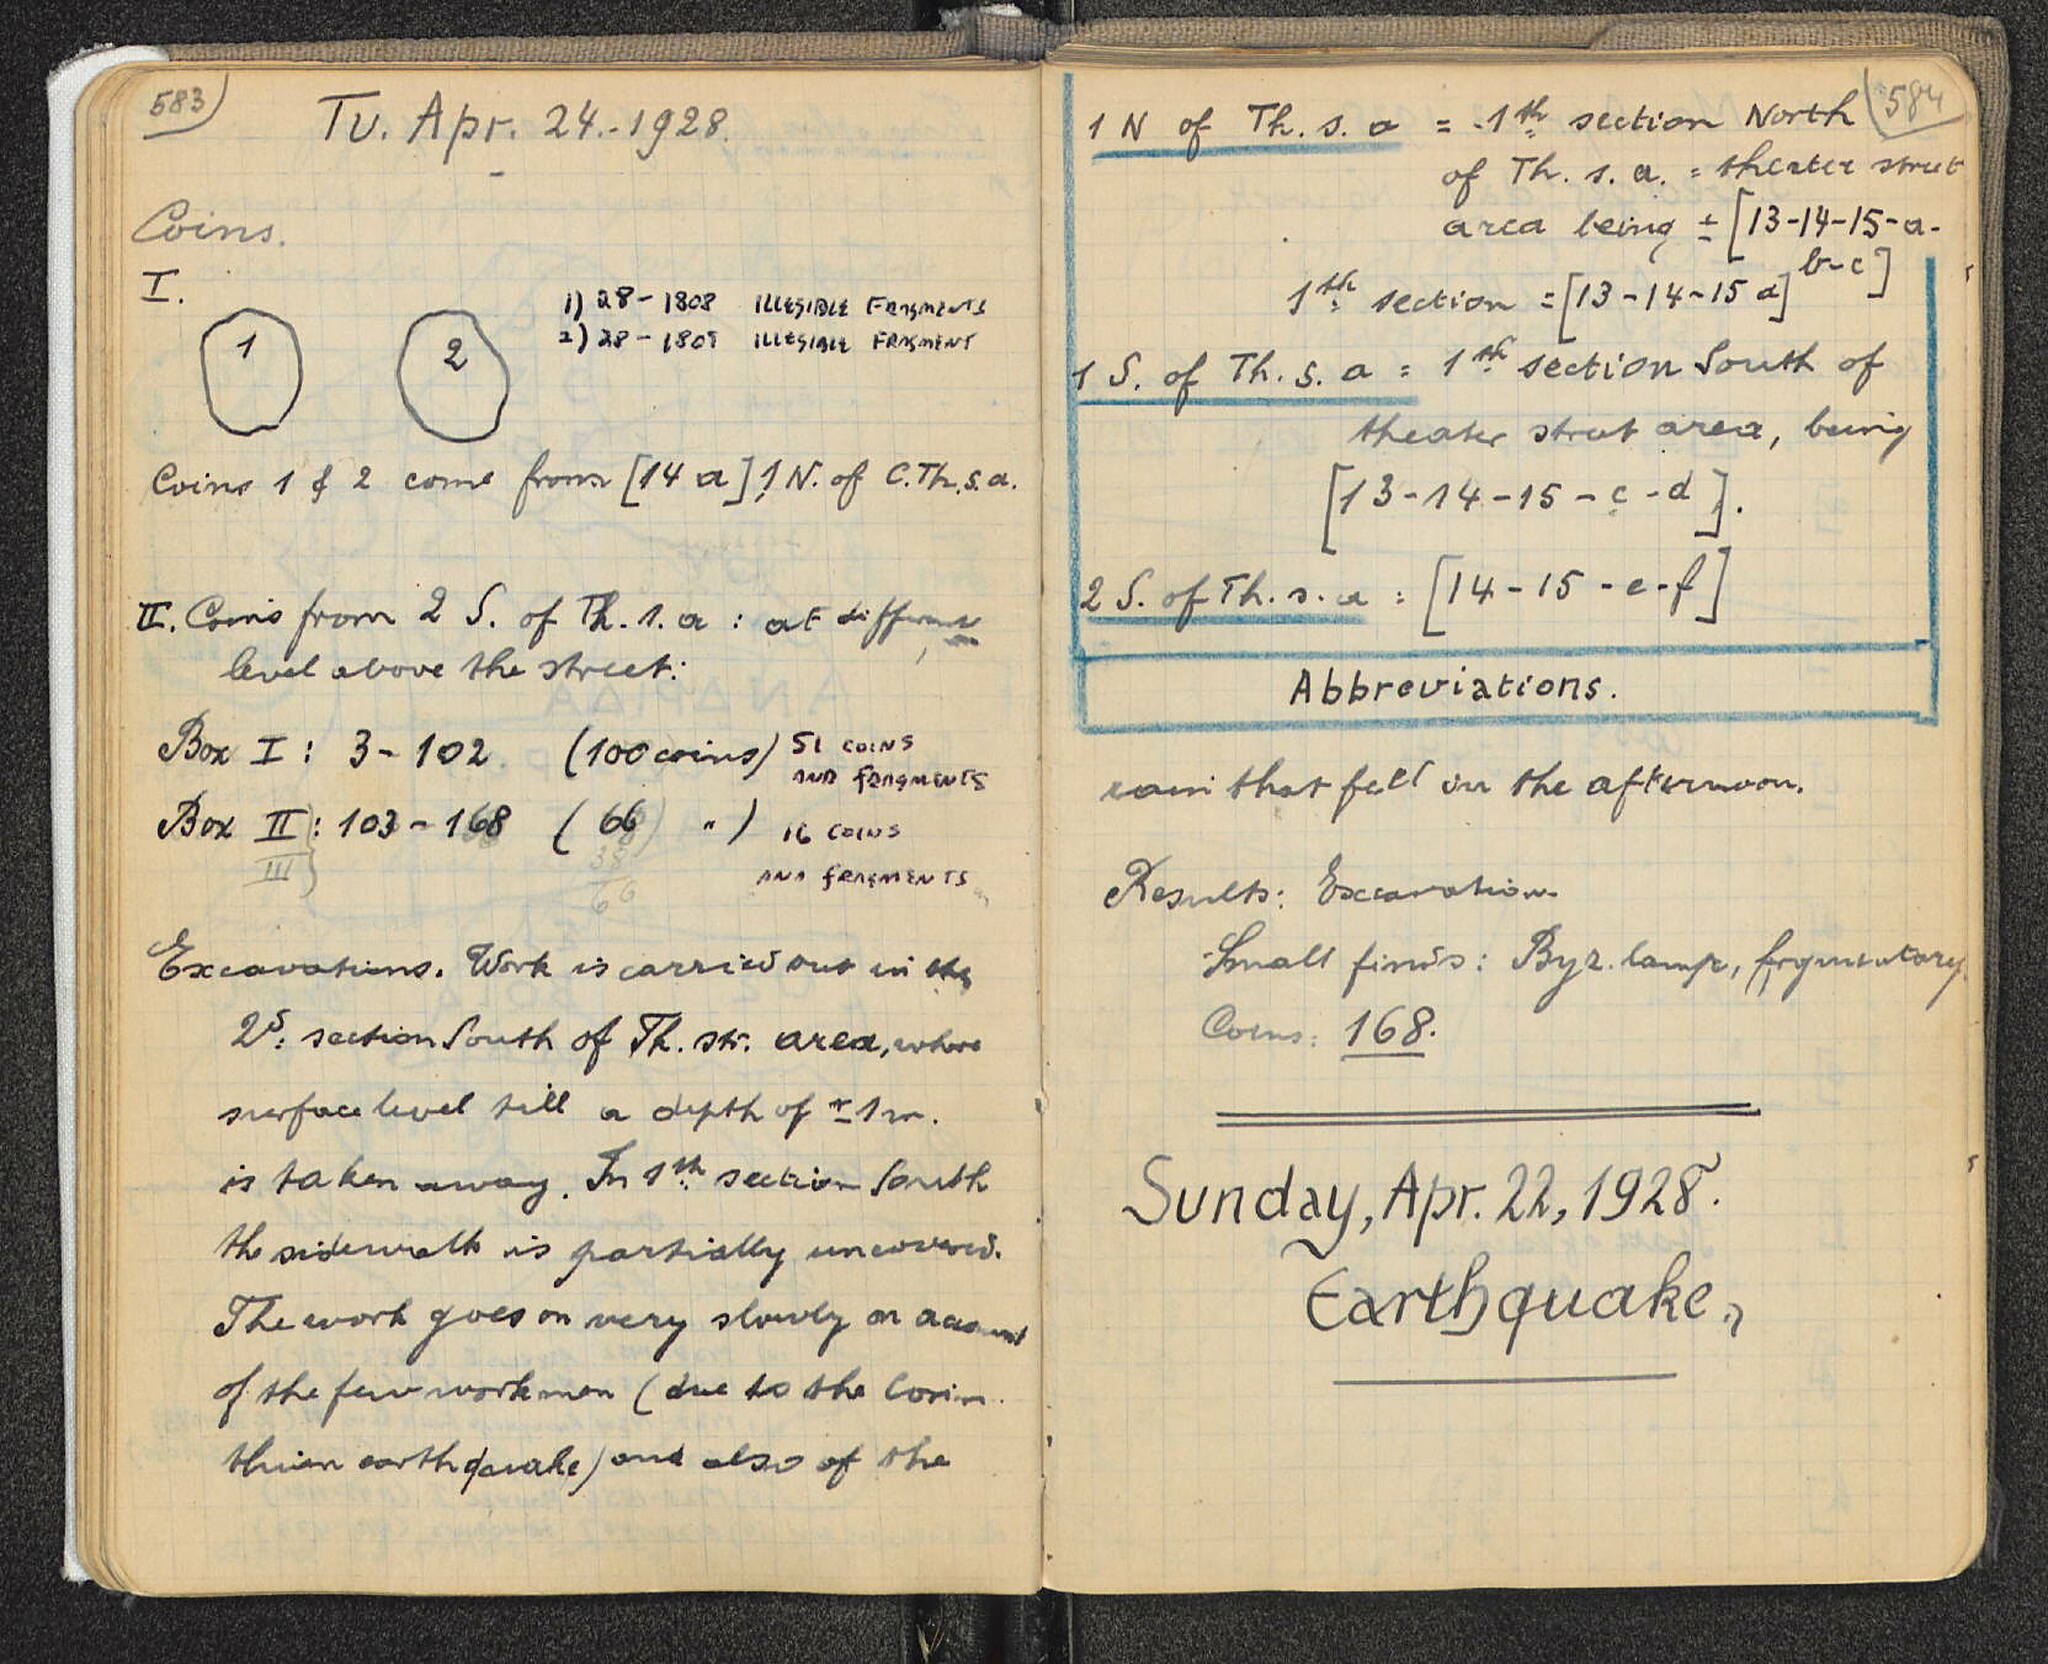 583
Tu. Apr. 24.-1928.
Coins.
I.
1 2
1) 28-1808 ILLEGIBLE FRAGMENTS
2) 28-1809 ILLEGIBLE FRAGMENT
Coins 1 & 2 come from [14 a] 1 N. of C.Th.s.a.
II. Coins from 2 S. of Th. s. a : at different
level above the street:
Box I : 3-102 (100 coins) 51 COINS
AND FRAGMENTS
Box II : 103-168 (66 ") 16 COINS
III 38
AND FRAGMENTS
66
Excavations. Work is carried out in the
2d: section South of Th. str. area, where
surface level till a depth of ± 1 m.
is taken away. In 1th section South
the sidewalk is partially uncovered.
The work goes on very slowly on account
of the few workmen (due to the Corin-
thian earthquake) and also of the
584
1 N of Th. s. a = 1th section North
of Th. s. a. = theater street
area being ± [13-14-15-a-
b-c]
1th section = [13-14-15 a]
1 S. of Th. s. a = 1th section South of
theater street area, being
[13-14-15-c-d].
2 S. of Th. s. a : [14-15-e-f]
Abbreviations.
rain that fell in the afternoon.
Results: Excavation.
Small finds: Byz. lamp, frgmentary
Coins: 168.
Sunday, Apr. 22, 1928.
Earthquake,